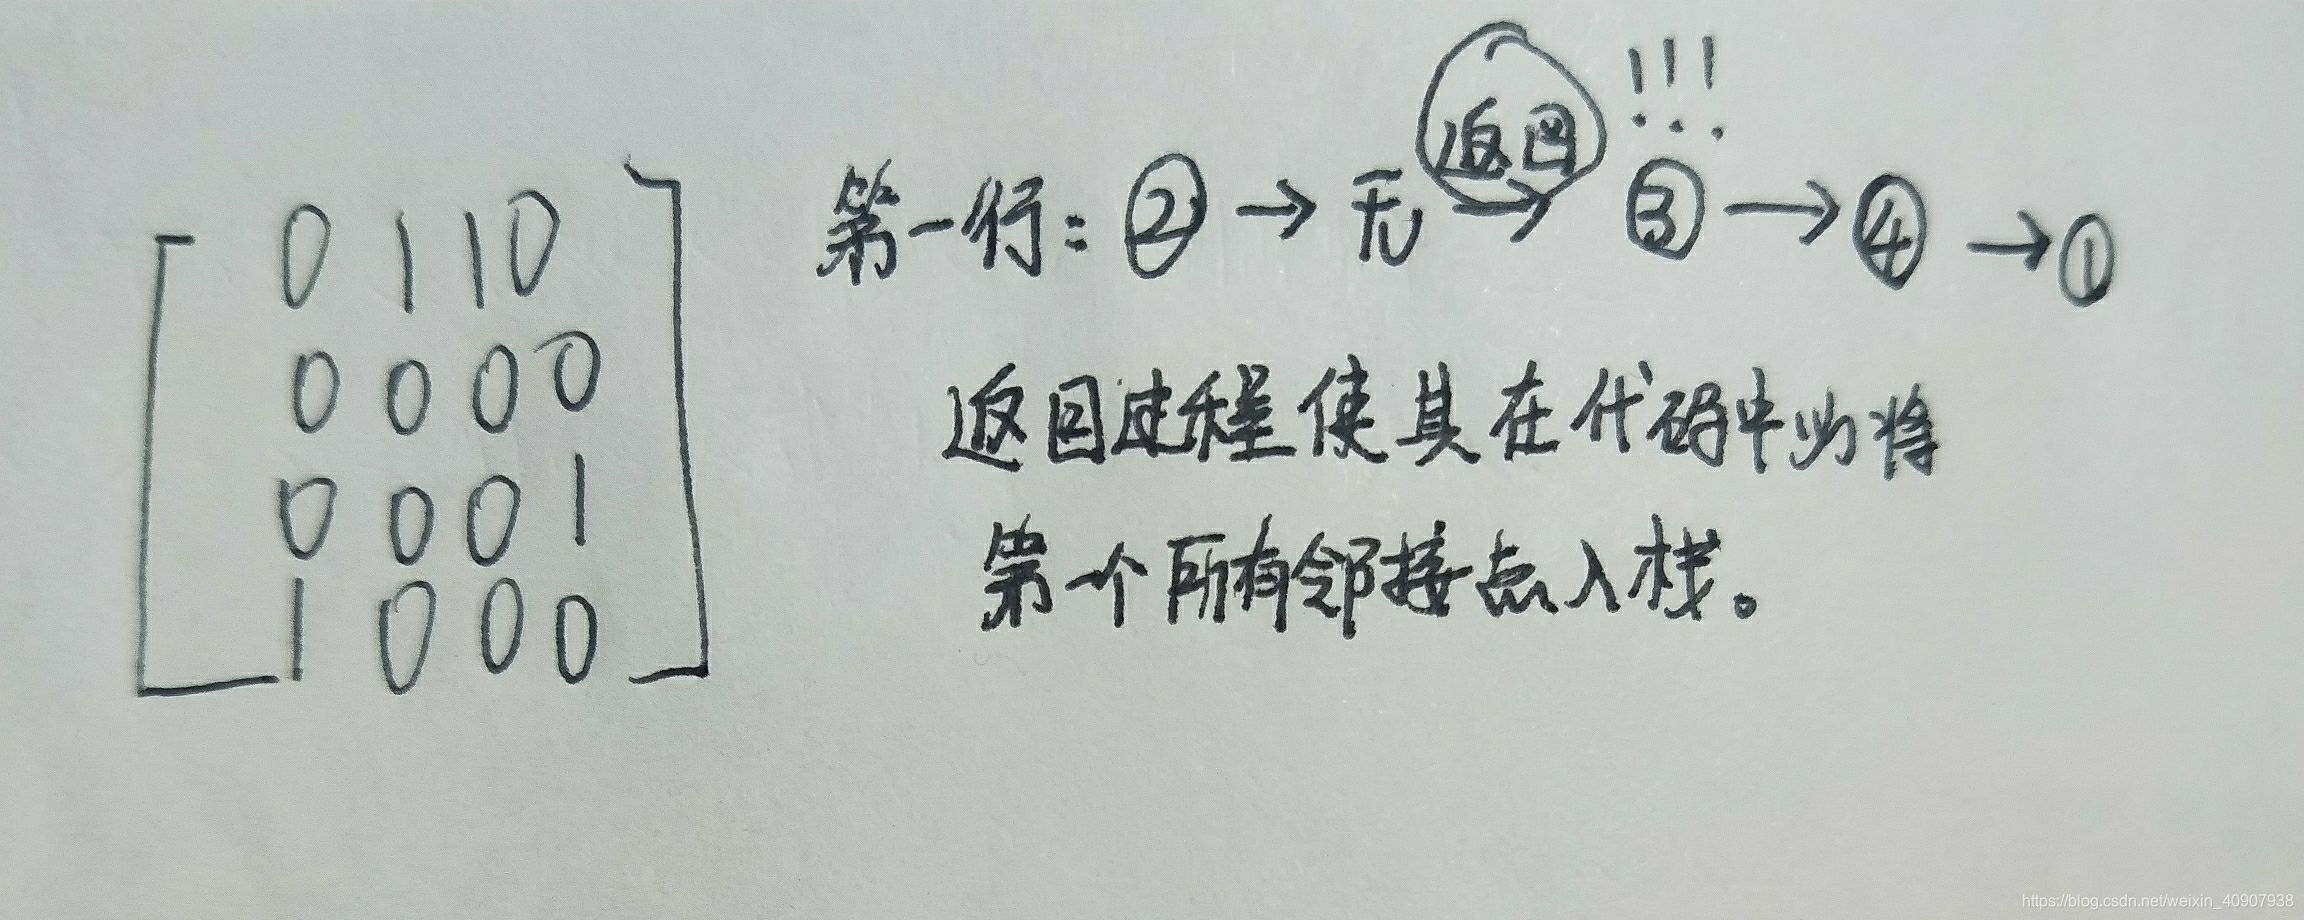 0 1 1 0
0 0 0 0
0 0 0 1
1 0 0 0
返回 !!!
第一行: ② → 无 → ③ → ④ → ①
返回过程使其在代码中必将
第一个所有邻接点入栈。
https://blog.csdn.net/weixin_40907938